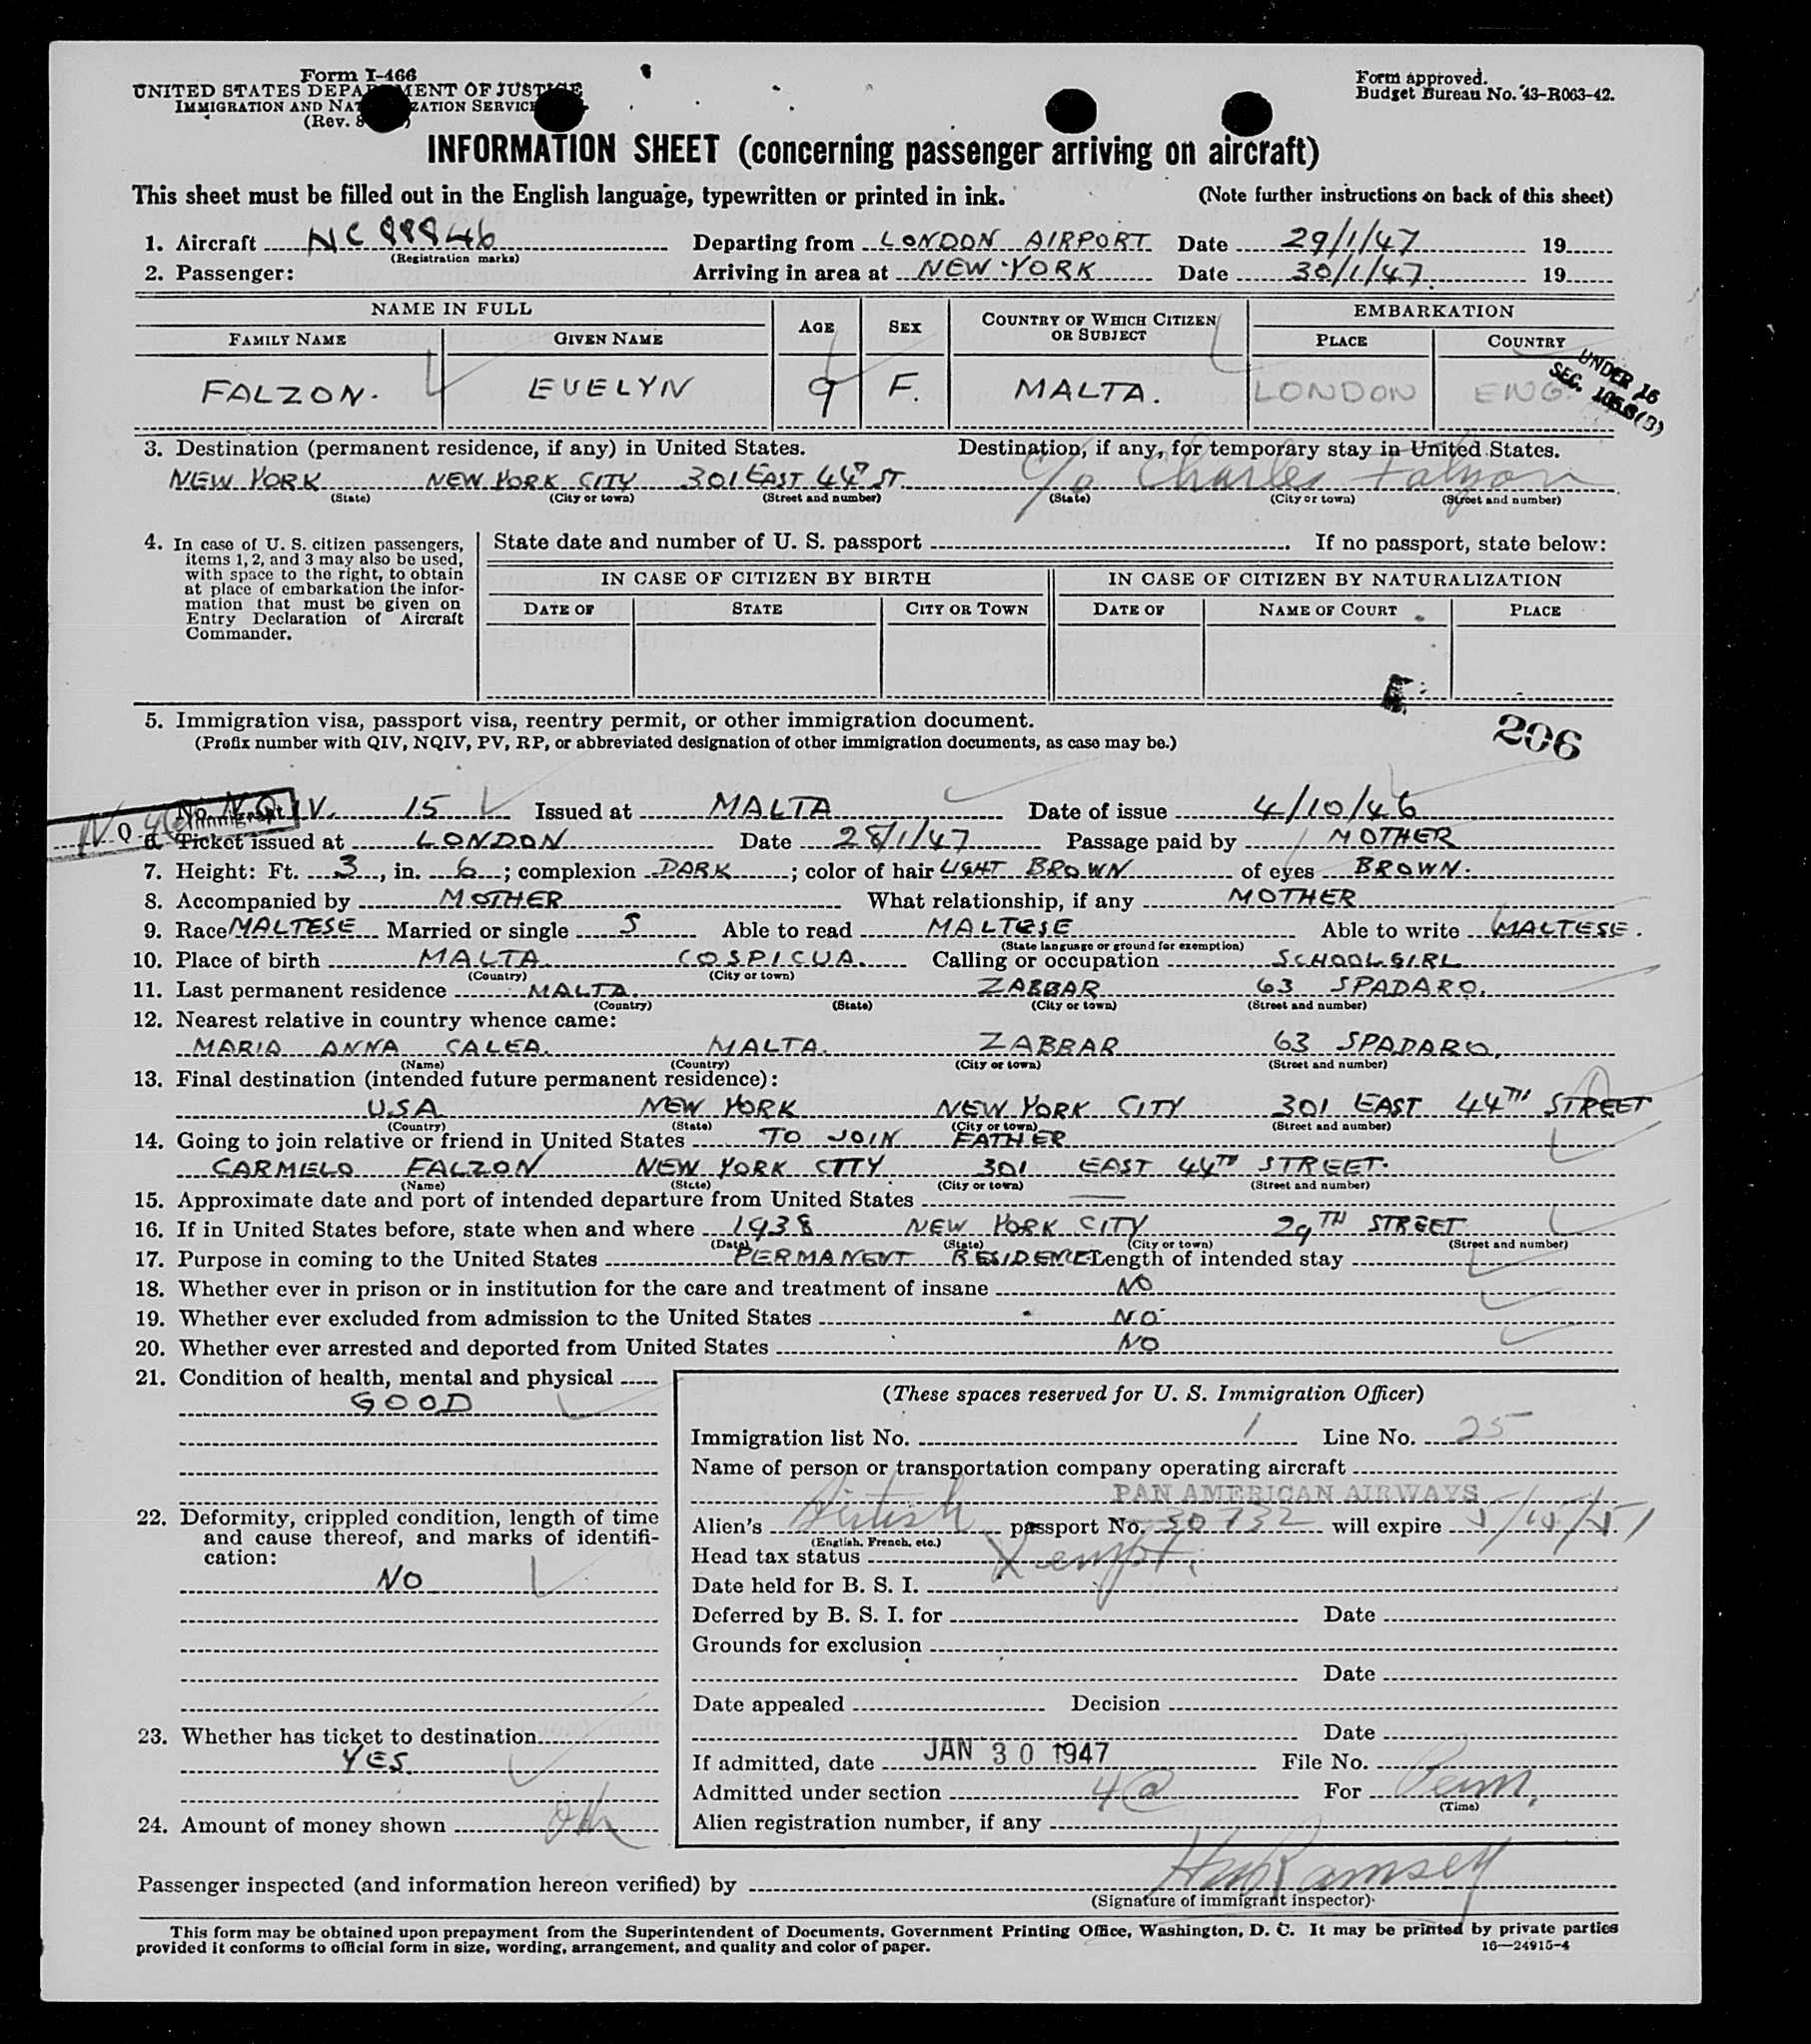 Form I-466
UNITED STATES DEPARTMENT OF JUSTICE
IMMIGRATION AND NATURALIZATION SERVICE
(Rev. 8
Form approved.
Budget Bureau No. 43-R063-42.
INFORMATION SHEET (concerning passenger arriving on aircraft)
This sheet must be filled out in the English language, typewritten or printed in ink. (Note further instructions on back of this sheet)
1. Aircraft NC 88846 Departing from LONDON AIRPORT Date 29/1/47 19
(Registration marks)
2. Passenger: Arriving in area at NEW YORK Date 30/1/47. 19
NAME IN FULL AGE SEX COUNTRY OF WHICH CITIZEN OR SUBJECT EMBARKATION
FAMILY NAME GIVEN NAME PLACE COUNTRY
UNDER 16
SEC.
FALZON. EVELYN 9 F. MALTA. LONDON ENG.
3. Destination (permanent residence, if any) in United States. Destination, if any, for temporary stay in United States.
NEW YORK NEW YORK CITY 301 EAST 44TH ST. c/o Charles Falzon
(State) (City or town) (Street and number) (State) (City or town) (Street and number)
4. In case of U. S. citizen passengers,
items 1, 2, and 3 may also be used,
with space to the right, to obtain
at place of embarkation the infor-
mation that must be given on
Entry Declaration of Aircraft
Commander.
State date and number of U. S. passport . If no passport, state below:
IN CASE OF CITIZEN BY BIRTH IN CASE OF CITIZEN BY NATURALIZATION
DATE OF STATE CITY OR TOWN DATE OF NAME OF COURT PLACE
5. Immigration visa, passport visa, reentry permit, or other immigration document.
(Prefix number with QIV, NQIV, PV, RP, or abbreviated designation of other immigration documents, as case may be.)
206
No. N.Q.I.V. 15 Issued at MALTA Date of issue 4/10/46
6. Ticket issued at LONDON Date 28/1/47 Passage paid by MOTHER
7. Height: Ft. 3, in. 6; complexion DARK; color of hair LIGHT BROWN of eyes BROWN.
8. Accompanied by MOTHER What relationship, if any MOTHER
9. Race MALTESE Married or single S Able to read MALTESE Able to write MALTESE.
(State language or ground for exemption)
10. Place of birth MALTA COSPICUA. Calling or occupation SCHOOLGIRL
(Country) (City or town)
11. Last permanent residence MALTA ZABBAR 63 SPADARO.
(Country) (State) (City or town) (Street and number)
12. Nearest relative in country whence came:
MARIA ANNA CALEA. MALTA. ZABBAR 63 SPADARO.
(Name) (Country) (City or town) (Street and number)
13. Final destination (intended future permanent residence):
USA NEW YORK NEW YORK CITY 301 EAST 44TH STREET
(Country) (State) (City or town) (Street and number)
14. Going to join relative or friend in United States TO JOIN FATHER
CARMELO FALZON NEW YORK CITY 301 EAST 44TH STREET.
(Name) (State) (City or town) (Street and number)
15. Approximate date and port of intended departure from United States —
16. If in United States before, state when and where 1938 NEW YORK CITY 29TH STREET
(Date) (State) (City or town) (Street and number)
17. Purpose in coming to the United States PERMANENT RESIDENCE Length of intended stay
18. Whether ever in prison or in institution for the care and treatment of insane NO
19. Whether ever excluded from admission to the United States NO
20. Whether ever arrested and deported from United States NO
21. Condition of health, mental and physical
GOOD
22. Deformity, crippled condition, length of time
and cause thereof, and marks of identifi-
cation:
NO
23. Whether has ticket to destination
YES.
24. Amount of money shown
(These spaces reserved for U. S. Immigration Officer)
Immigration list No. 1 Line No. 25
Name of person or transportation company operating aircraft
PAN AMERICAN AIRWAYS
Alien's British passport No. 30732 will expire
(English, French, etc.)
Head tax status
Date held for B. S. I.
Deferred by B. S. I. for Date
Grounds for exclusion
Date
Date appealed Decision
Date
If admitted, date JAN 30 1947 File No.
Admitted under section 4@ For Perm.
(Time)
Alien registration number, if any
Passenger inspected (and information hereon verified) by Ramsey
(Signature of immigrant inspector)
This form may be obtained upon prepayment from the Superintendent of Documents, Government Printing Office, Washington, D. C. It may be printed by private parties
provided it conforms to official form in size, wording, arrangement, and quality and color of paper. 16—24915-4